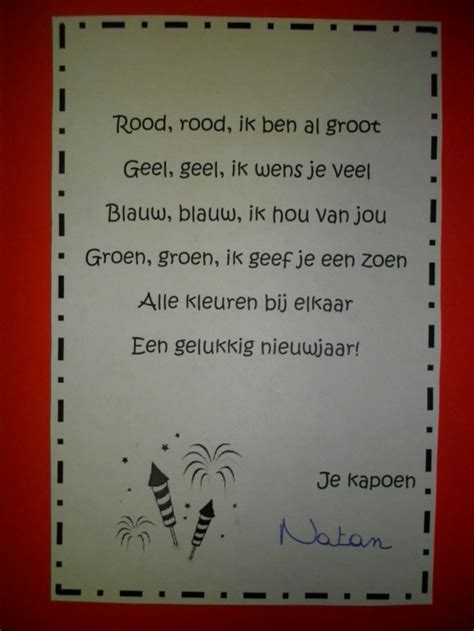 Rood, rood, ik ben al groot
Geel, geel, ik wens je veel
Blauw, blauw, ik hou van jou
Groen, groen, ik geef je een zoen
Alle kleuren bij elkaar
Een gelukkig nieuwjaar!
Je kapoen
Natan